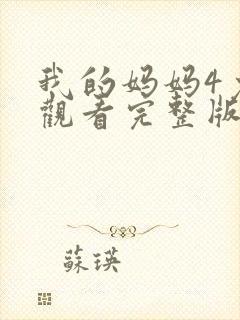 我的妈妈4
觀看完整版
蘇瑛